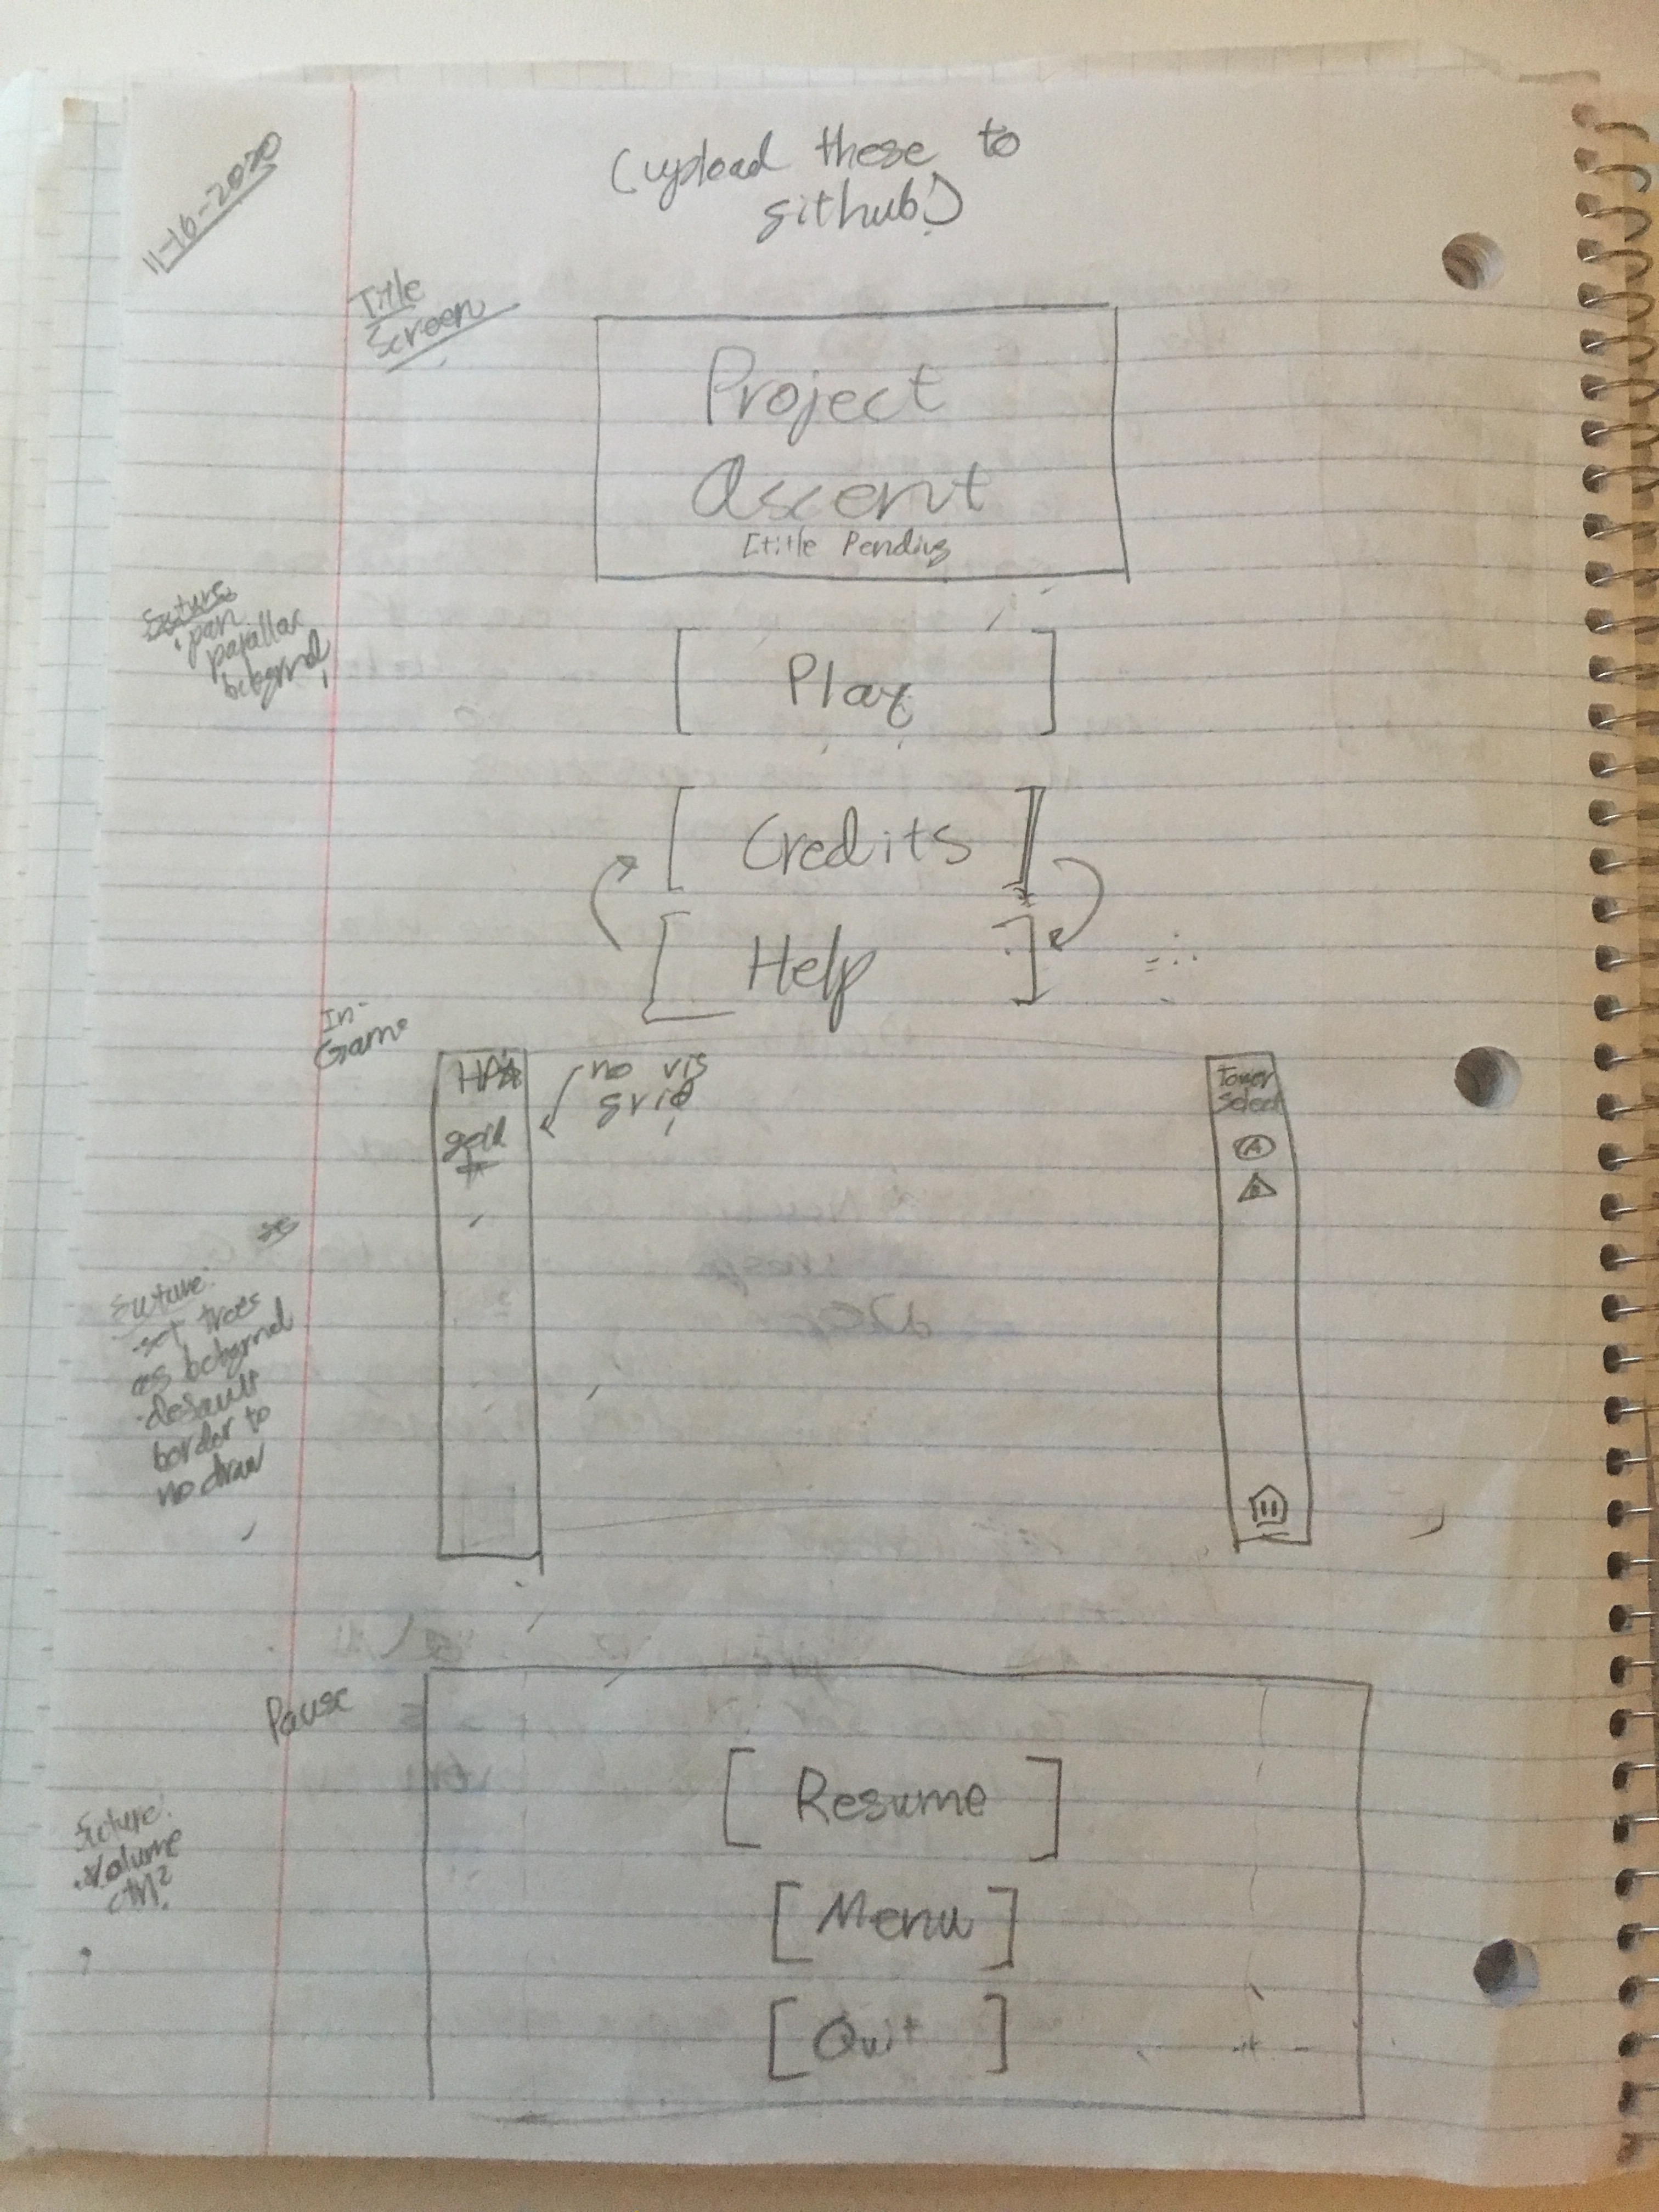 11-16-2020
(upload these to
github!)
Title
Screen
Project
Ascent
[title Pending
Future
· pan
parallax
bckgrnd
[ Play ]
[ Credits ]
[ Help ]
In-
Game
HP
gold
no vis
grid
Tower
Select
A
Future:
·set trees
as bckgrnd
·default
border to
no draw
Pause
[ Resume ]
[ Menu ]
[ Quit ]
Future:
·Volume
ctrl?